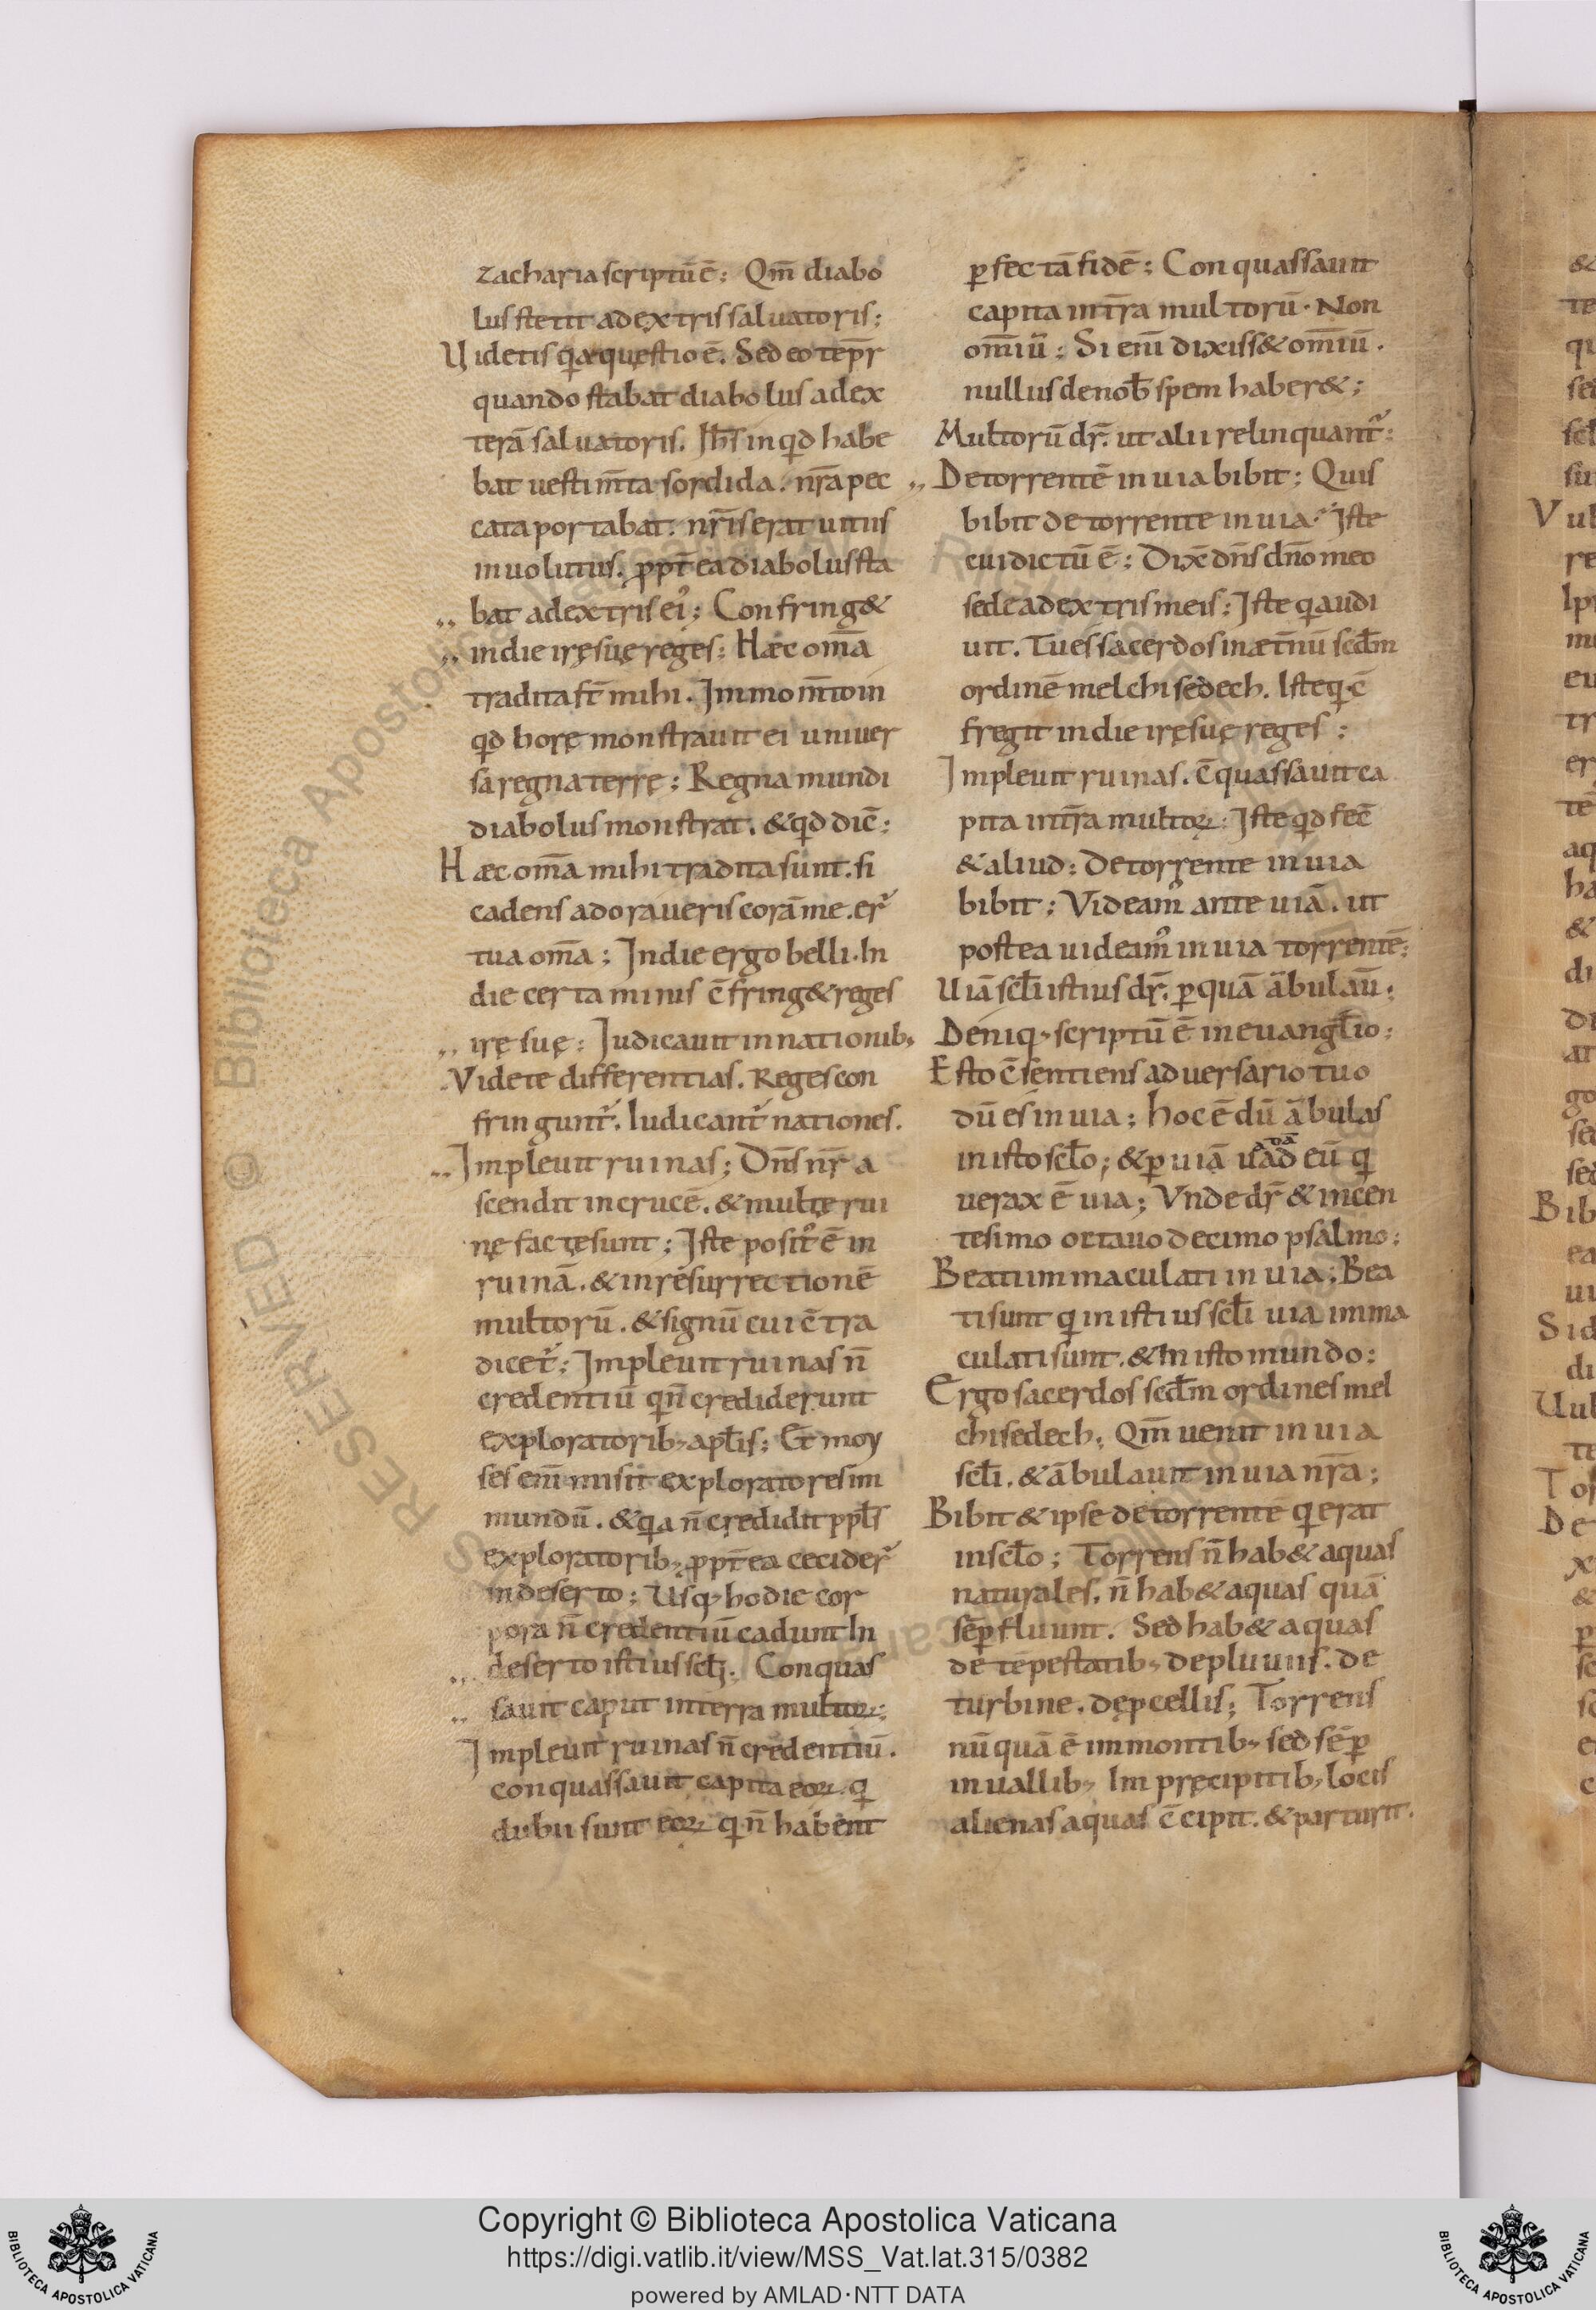 zacharia scriptū ē; Qm̄ diabo
lus stetit adextris saluatoris;
Uidetis q̄ quęstio ē. Sed eo tēpr
quando stabat diabolus adex
terā saluatoris. Ih̄s inq̄d habe
bat uestim̄ta sordida. nr̄a pec
cata portabat. nr̄is erat uitiis
inuolutus. ppt̄ea diabolus sta
bat adextris ei᾽; Confring&
in die irę suę reges; Hæc om̄a
tradita st̄ mihi. Immo m̄to in
q̄d horę monstrauit ei uniuer
sa regna terrę; Regna mundi
diabolus monstrat. & q̄d dic̄;
Hæc om̄a mihi tradita sunt. si
cadens adoraueris corā me. er᾽
tua om̄a; In die ergo belli. In
die certaminis c̄fring& reges
irę suę; Iudicauit in nationib;
Videte differentias. Reges con
fringunt᾽. Iudicant᾽ nationes.
Impleuit ruinas; Dn̄s nr̄ a
scendit in crucē. & multę rui
nę factę sunt; Iste posit᾽ ē in
ruinā. & in resurrectionē
multorū. & signū cui c̄tra
dicet᾽; Impleuit ruinas n̄
credentiū qi n̄ crediderunt
exploratorib; apl̄is; Et moy
ses eni᷄ misit exploratores in
mundū. & qa n̄ credidit ppl̄s
exploratorib; ppt̄ea cecider᾽
in deserto; Usq; hodie cor
pora n̄ credentiū cadunt In
deserto istius scl̄i. Conquas
sauit caput in terra multoꝝ;
Impleuit ruinas n̄ credentiū.
conquassauit capita eoꝝ. qi
dubii sunt eoꝝ qi n̄ habent
pfectā fidē; Conquassauit
capita in tr̄a multorū. Non
om̄iū; Si eni᷄ dixiss& om̄iū.
nullus de nob̄ spem haber&;
Multorū dr̄. ut alii relinquant᾽;
De torrentē in uia bibit; Quis
bibit de torrente in uia? Iste
cui dictū ē; Dix̄ dn̄s dn̄o meo
sede adextris meis; Iste qi audi
uit. Tu es sacerdos in æt̄nū scd̄m
ordinē melchisedech. Iste qi c̄
fregit in die irę suę reges;
Impleuit ruinas. c̄quassauit ca
pita in tr̄a multoꝝ; Iste q̄d fec̄
& aliud; De torrente in uia
bibit; Videam᾽ ante uiā. ut
postea uideam᾽ in uia torrentē;
Uiā scl̄i istius dr̄. p quā ābulau᷄;
Deniq; scriptū ē in euangl̄io;
Esto c̄sentiens aduersario tuo
dū es in uia; Hoc ē dū ābulas
in isto scl̄o; & p uiā uadā ad eū qi
uerax ē uia; Vnde dr̄ & in cen
tesimo octauo decimo psalmo;
Beati immaculati in uia; Bea
ti sunt qi in istius scl̄i uia imma
culati sunt. & In isto mundo;
Ergo sacerdos scd̄m ordines mel
chisedech; Qm̄ uenit in uia
scl̄i. & ābulauit in uia nr̄a;
Bibit & ipse de torrente qi erat
in scl̄o; Torrens n̄ hab& aquas
naturales. n̄ hab& aquas quā
sēp fluunt. Sed hab& aquas
de tēpestatib; de pluuiis. de
turbine. de pcellis; Torrens
nūquā ē in montib; sed sēp
in uallib; Im pręcipitib; locis
alienas aquas c̄cipit. & parturit.
Copyright © Biblioteca Apostolica Vaticana
https://digi.vatlib.it/view/MSS_Vat.lat.315/0382
powered by AMLAD·NTT DATA
BIBLIOTECA APOSTOLICA VATICANA
BIBLIOTECA APOSTOLICA VATICANA